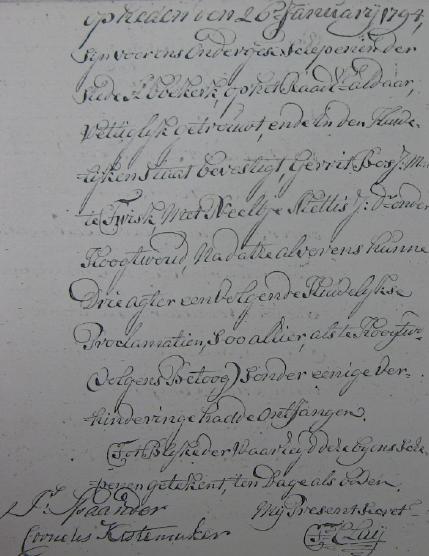 op heden den 26 January 1794,
Sijn voor ons ondergesz Schepenen der
Stede Abbekerk, op het Raadt aldaar,
Wettiglijk getrouwt, ende in den Huwe-
lijken Staat bevestigt, Gerrit Bos J: M
te Twisk, Met Neeltje Slettis J: Dr onder
Hoogtwoud, Na dat alvorens hunne
Drie agter een volgende Huwelijkse
Proclamatien, Soo alhier, als te Hoogtw
(volgens Betoog) Sonder eenige ver-
hinderinge hadde ontfangen.
Tot Blijke der Waarheijd deze bij ons Sche-
penen getekent, ten dage als boven.
Mij Present Secret
Jn Spaander
Cornelis Kistemaker